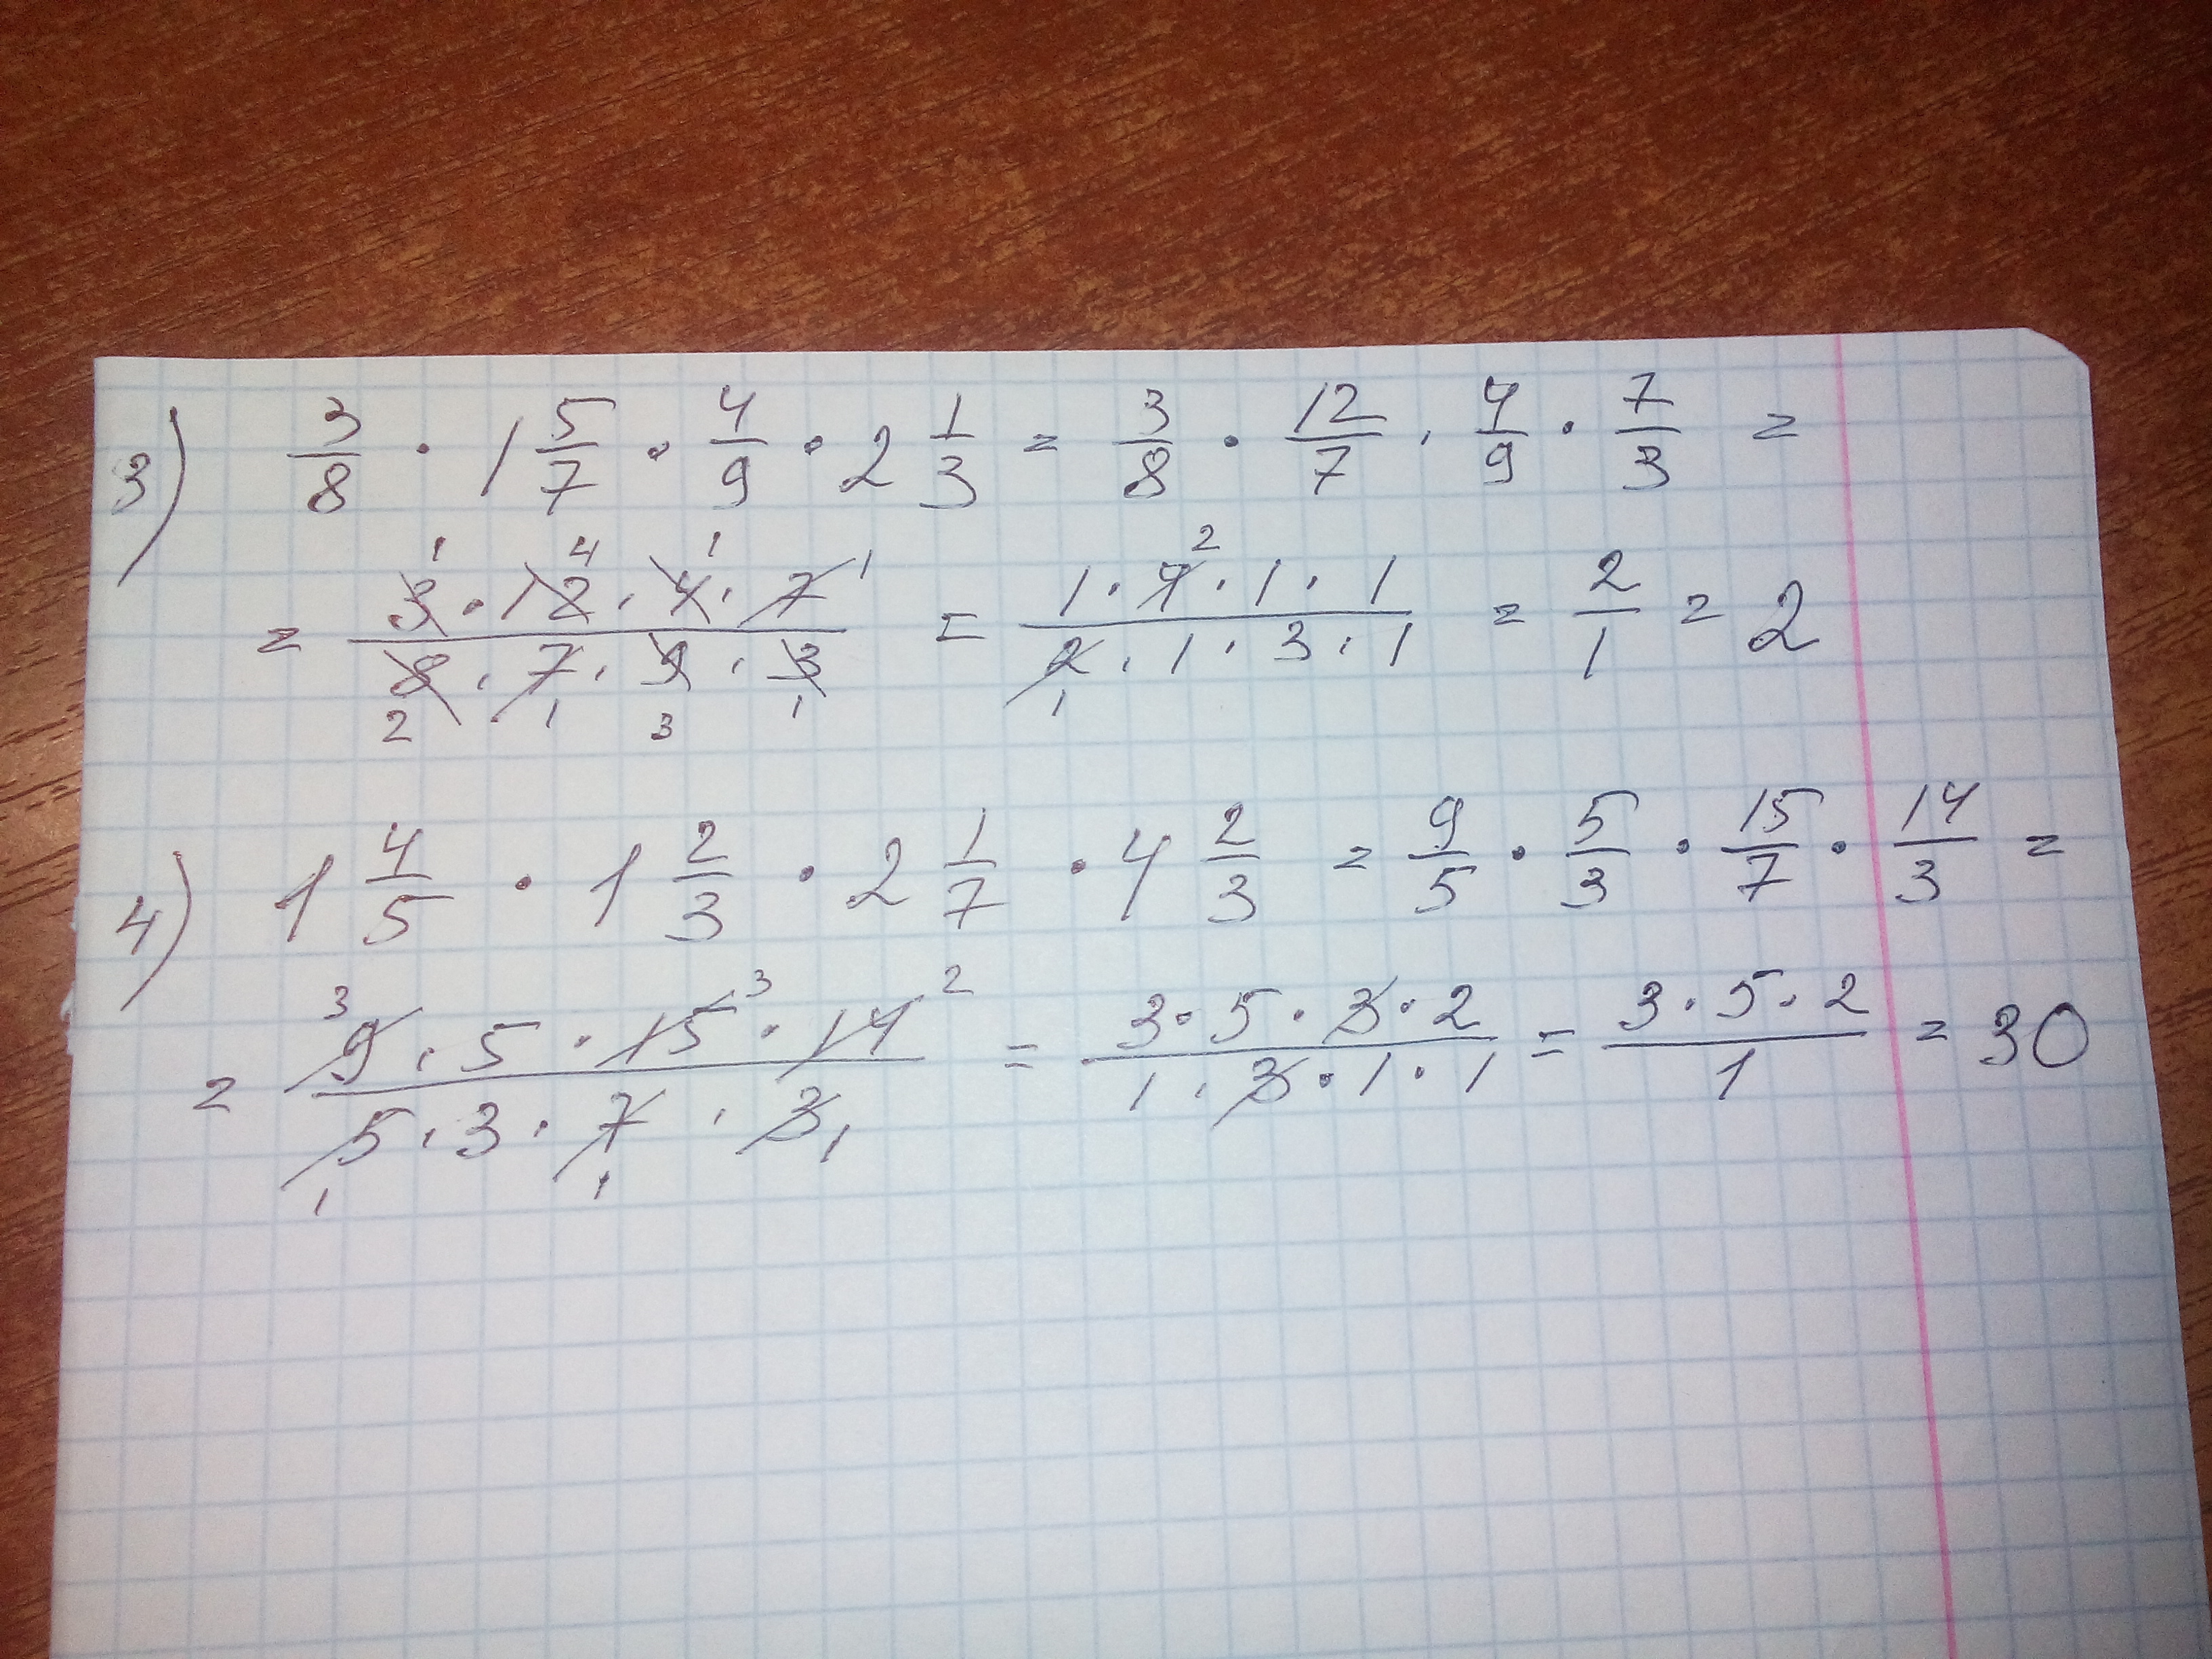 3) 3/8 · 1 5/7 · 4/9 · 2 1/3 = 3/8 · 12/7 · 4/9 · 7/3 =
1 4 1 1
= (3 · 12 · 4 · 7)/(8 · 7 · 9 · 3) = (1 · 4 · 1 · 1)/(2 · 1 · 3 · 1) = 2/1 = 2
2 1 3 1 2 1
4) 1 4/5 · 1 2/3 · 2 1/7 · 4 2/3 = 9/5 · 5/3 · 15/7 · 14/3 =
3 3 2
= (9 · 5 · 15 · 14)/(5 · 3 · 7 · 3) = (3 · 5 · 3 · 2)/(1 · 3 · 1 · 1) = (3 · 5 · 2)/1 = 30
1 1 1